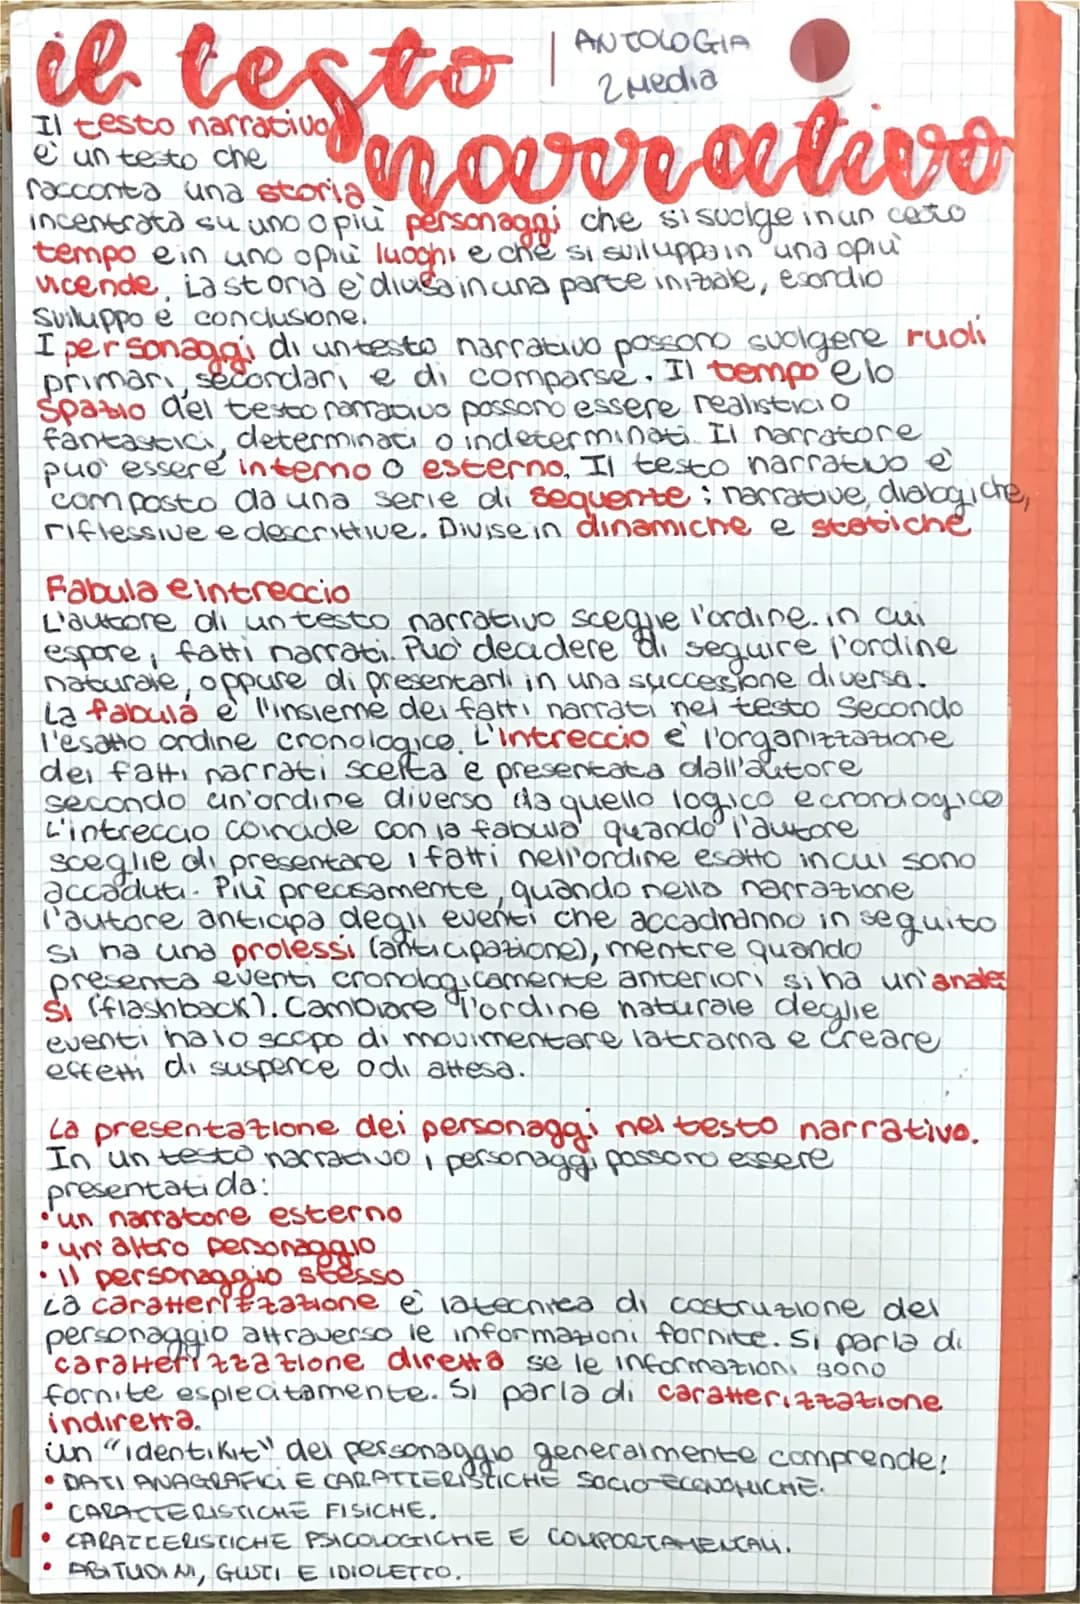 il testo
ANTOLOGIA
2 Media
narrativo
Il testo narrativo
è un testo che
racconta una storia
incentrata su uno o più personaggi che si svolge in un certo
tempo e in uno o più luoghi e che si sviluppa in una o più
vicende. La storia è divisa in una parte iniziale, esordio
sviluppo e conclusione.
I personaggi di un testo narrativo possono svolgere ruoli
primari, secondari e di comparse. Il tempo e lo
spazio del testo narrativo possono essere realistici o
fantastici, determinati o indeterminati. Il narratore
può essere interno o esterno. Il testo narrativo è
composto da una serie di sequente: narrative, dialogiche,
riflessive e descrittive. Divise in dinamiche e statiche
Fabula e intreccio
L'autore di un testo narrativo sceglie l'ordine in cui
esporre i fatti narrati. Può decidere di seguire l'ordine
naturale, oppure di presentarli in una successione diversa.
La fabula è l'insieme dei fatti narrati nel testo secondo
l'esatto ordine cronologico. L'intreccio è l'organizzazione
dei fatti narrati scelta e presentata dall'autore
secondo un'ordine diverso da quello logico e cronologico
L'intreccio coincide con la fabula quando l'autore
sceglie di presentare i fatti nell'ordine esatto in cui sono
accaduti. Più precisamente, quando nella narrazione
l'autore anticipa degli eventi che accadranno in seguito
si ha una prolessi (anticipazione), mentre quando
presenta eventi cronologicamente anteriori si ha un'anales
si (flashback). Cambiare l'ordine naturale deglie
eventi ha lo scopo di movimentare la trama e creare
effetti di suspence o di attesa.
La presentazione dei personaggi nel testo narrativo.
In un testo narrativo i personaggi possono essere
presentati da:
• un narratore esterno
• un altro personaggio
• il personaggio stesso
La caratterizzazione è la tecnica di costruzione del
personaggio attraverso le informazioni fornite. Si parla di
caratterizzazione diretta se le informazioni sono
fornite esplecitamente. Si parla di caratterizzazione
indiretta.
Un "identikit" del personaggio generalmente comprende:
• DATI ANAGRAFICI E CARATTERISTICHE SOCIO-ECONOMICHE.
• CARATTERISTICHE FISICHE.
• CARATTERISTICHE PSICOLOGICHE E COMPORTAMENTALI.
• ABITUDINI, GUSTI E IDIOLETTO.